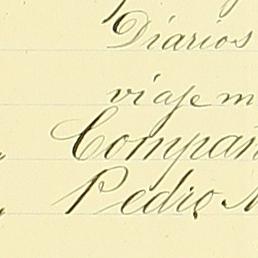 Diarios
viaje m
Compañ
Pedro